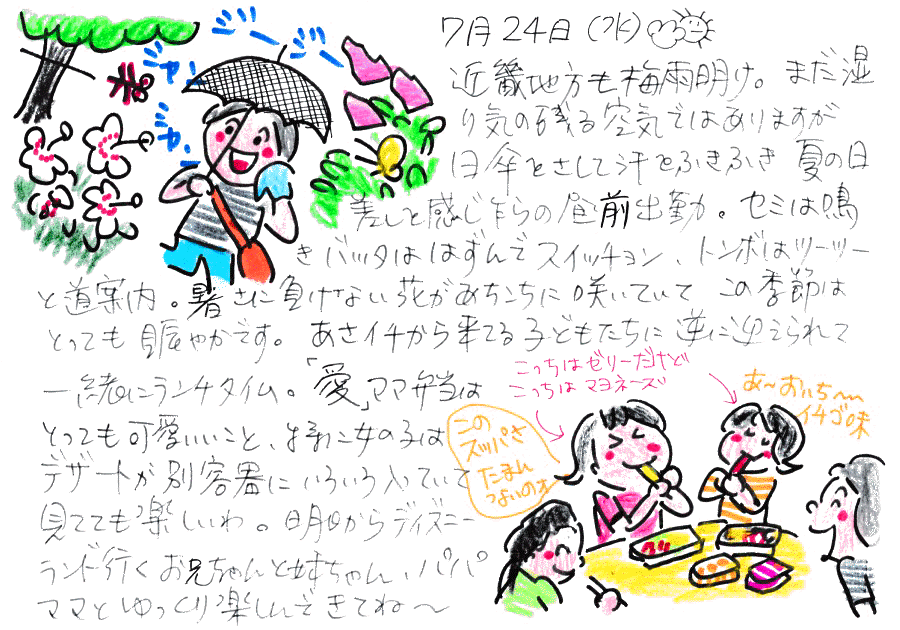 7月24日(水)
近畿地方も梅雨明け。まだ湿
り気の残る空気ではありますが
日傘をさして汗をふきふき 夏の日
差しを感じ乍らの昼前出勤。セミは鳴
きバッタははずんでスイッチョン、トンボはツーツー
と道案内。暑さに負けない花があちこちに咲いていて この季節は
とっても賑やかです。あさイチから来てる子どもたちに逆に迎えられて
一緒にランチタイム。「愛」ママ弁当は
とっても可愛いいこと、特に女の子は
デザートが別容器にいろいろ入っていて
見てても楽しいわ。明日からディズニー
ランド行くお兄ちゃんと姉ちゃん、パパ
ママとゆっくり楽しんできてね〜
ジー ジー
ジャー
ジャー
こっちはゼリーだけど
こっちはマヨネーズ
あ〜おいち〜
イチゴ味
この
スッパさ
たまん
ないのォ